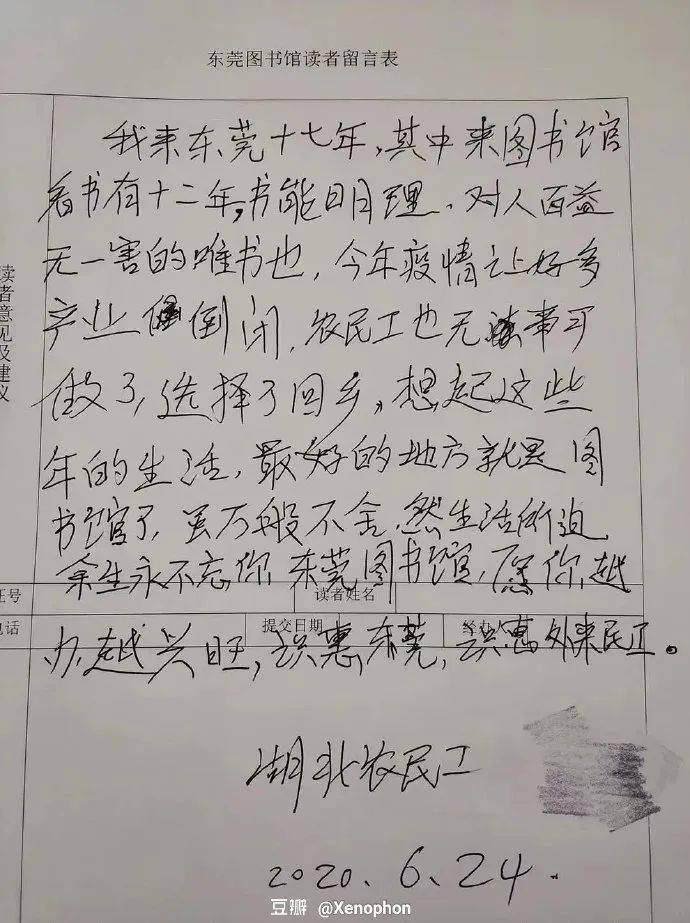 东莞图书馆读者留言表
我来东莞十七年，其中来图书馆
看书有十二年，书能明理、对人百益
无一害的唯书也，今年疫情让好多
产业倒闭，农民工也无事可
做了，选择了回乡，想起这些
年的生活，最好的地方就是图
书馆了，虽万般不舍，然生活所迫
余生永不忘你，东莞图书馆，愿你越
办越兴旺，识惠东莞，识惠外来民工。
读者意见及建议
证号
读者姓名
电话
提交日期
经办人
湖北农民工
2020、6、24.
豆瓣 @Xenophon